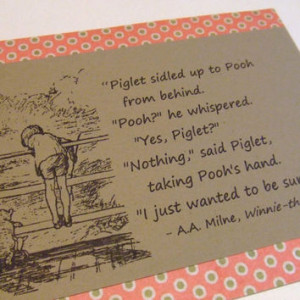 "Piglet sidled up to Pooh
from behind.
"Pooh?" he whispered.
"Yes, Piglet?"
"Nothing," said Piglet,
taking Pooh's hand.
"I just wanted to be su
- A.A. Milne, Winnie-th